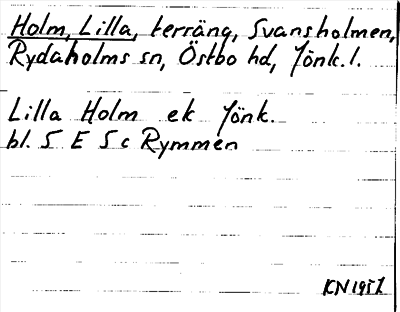 Holm, Lilla, terräng, Svansholmen,
Rydaholms sn, Östbo hd, Jönk.l.
Lilla Holm ek Jönk.
bl. 5 E 5 c Rymmen
KN 1957